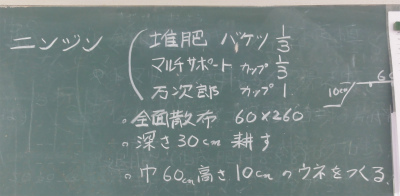 ニンジン
堆肥 バケツ 1/3
マルチサポート カップ 1/3
万次郎 カップ 1
10cm
。全面散布 60×260
。深さ30cm 耕す
。巾60cm高さ10cmのウネをつくる